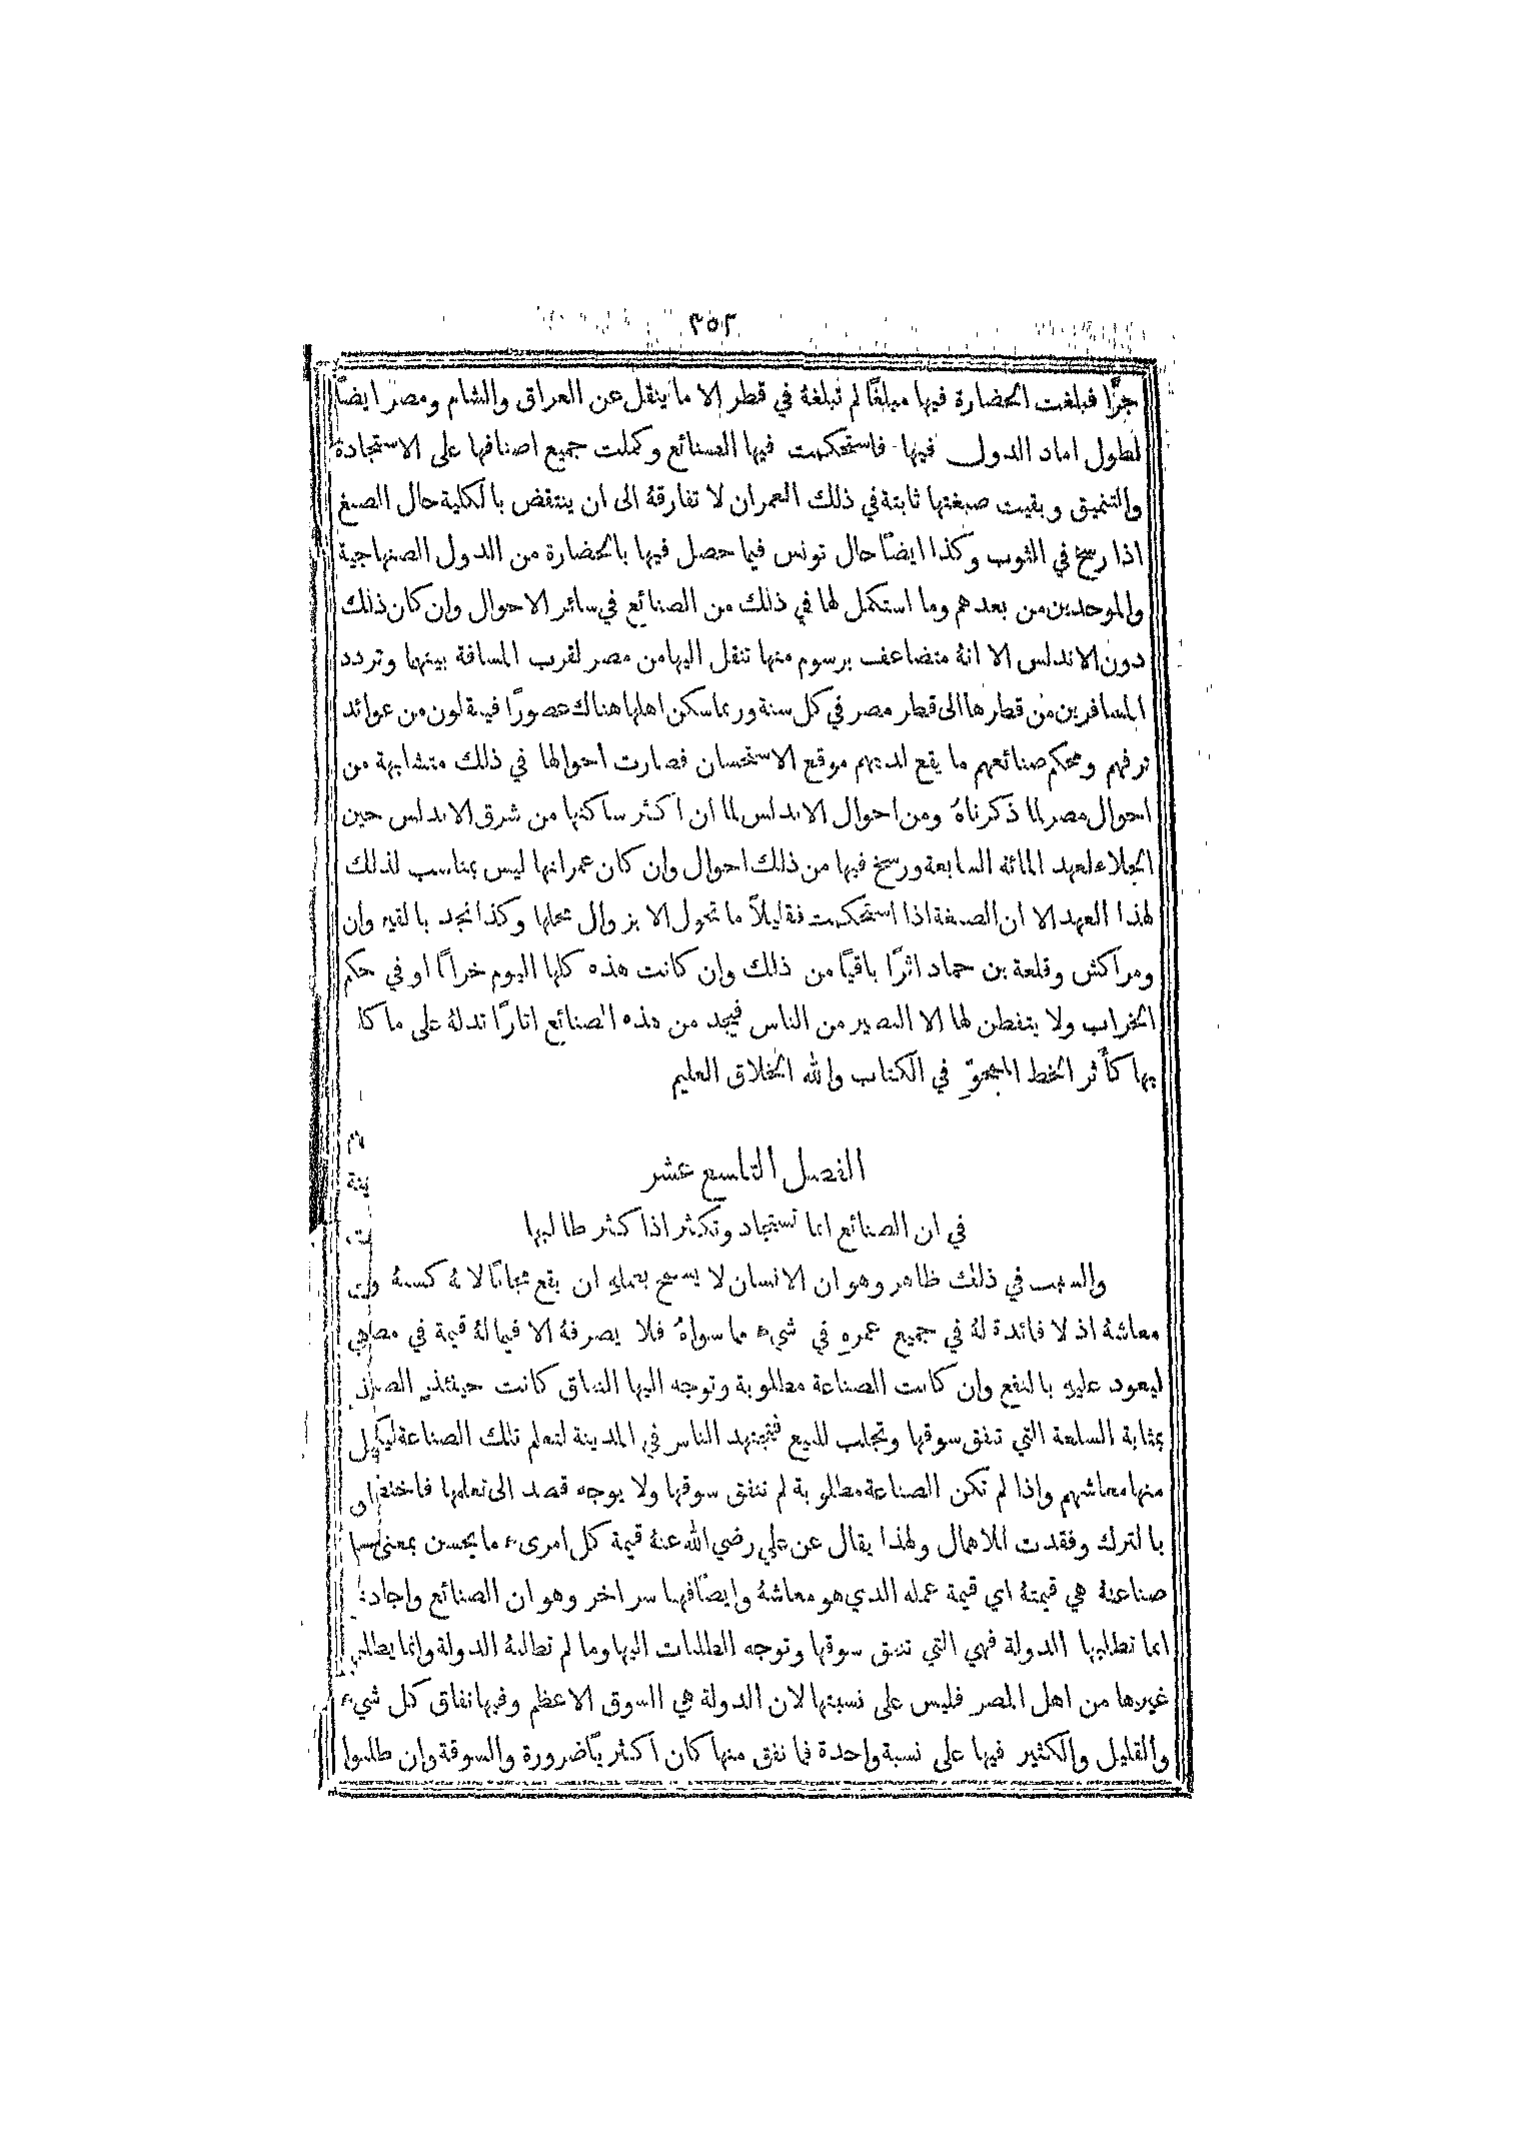 ٣٥٢
جرًّا فبلغت الحضارة فيها مبلغًا لم تبلغهُ في قطر الا ما ينقل عن العراق والشام ومصر ايضًا
لطول اماد الدول فيها فاستحكمت فيها الصنائع وكملت جميع اصنافها على الاستجادة
والتنميق وبقيت صبغتها ثابتة في ذلك العمران لا تفارقهُ الى ان ينتقض بالكلية حال الصبغ
اذا رسخ في الثوب وكذا ايضًا حال تونس فيما حصل فيها بالحضارة من الدول الصنهاجية
والموحدين من بعدهم وما استكمل لها في ذلك من الصنائع في سائر الاحوال وان كان ذلك
دون الاندلس الا انهُ متضاعف برسوم منها تنقل اليها من مصر لقرب المسافة بينهما وتردد
المسافرين من قطرها الى قطر مصر في كل سنة وربما سكن اهلها هناك عصورًا فينقلون من عوائد
ترفهم ومحكم صنائعهم ما يقع لديهم موقع الاستحسان فصارت احوالها في ذلك متشابهة من
احوال مصر لما ذكرناهُ ومن احوال الاندلس لما ان اكثر ساكنها من شرق الاندلس حين
الجلاء لعهد المائة السابعة ورسخ فيها من ذلك احوال وان كان عمرانها ليس بمناسب لذلك
لهذا العهد الا ان الصبغة اذا استحكمت فقليلاً ما تحول الا بزوال محلها وكذا نجد بالقيروان
ومراكش وقلعة بن حماد اثرًا باقيًا من ذلك وان كانت هذه كلها اليوم خرابًا او في حكم
الخراب ولا يتفطن لها الا البصير من الناس فيجد من هذه الصنائع اثارًا تدلهُ على ما كا
بها كأثر الخط الممحوّ في الكتاب والله الخلاق العليم
الفصل التاسع عشر
في ان الصنائع انما تستجاد وتكثر اذا كثر طالبها
والسبب في ذلك ظاهر وهو ان الانسان لا يسمح بعملهِ ان يقع مجانًا لانهُ كسبهُ
معاشهُ اذ لا فائدة لهُ في جميع عمرهِ في شيءٍ مما سواهُ فلا يصرفهُ الا فيما لهُ قيمة في
ليعود عليهِ بالنفع وان كانت الصناعة مطلوبة وتوجه اليها النفاق كانت حينئذٍ
بمثابة السلعة التي تنفق سوقها وتجلب للبيع فتجتهد الناس في المدينة لتعلم تلك الصناعة ليكون
منها معاشهم واذا لم تكن الصناعة مطلوبة لم تنفق سوقها ولا يوجه قصد الى تعلمها
بالترك وفقدت للاهمال ولهذا يقال عن علي رضي الله عنهُ قيمة كل امرىءٍ ما يحسن بمعنى
صناعتهُ هي قيمتهُ اي قيمة عمله الذي هو معاشهُ وايضًا فهنا سر اخر وهو ان الصنائع واجاد
انما تطلبها الدولة فهي التي تنفق سوقها وتوجه الطلبات اليها وما لم تطلبهُ الدولة وانما يطلبها
غيرها من اهل المصر فليس على نسبتها لان الدولة هي السوق الاعظم وفيها نفاق كل شيءٍ
والقليل والكثير فيها على نسبة واحدة فما نفق منها كان اكثريًّا ضرورة والسوقة وان طلبوا